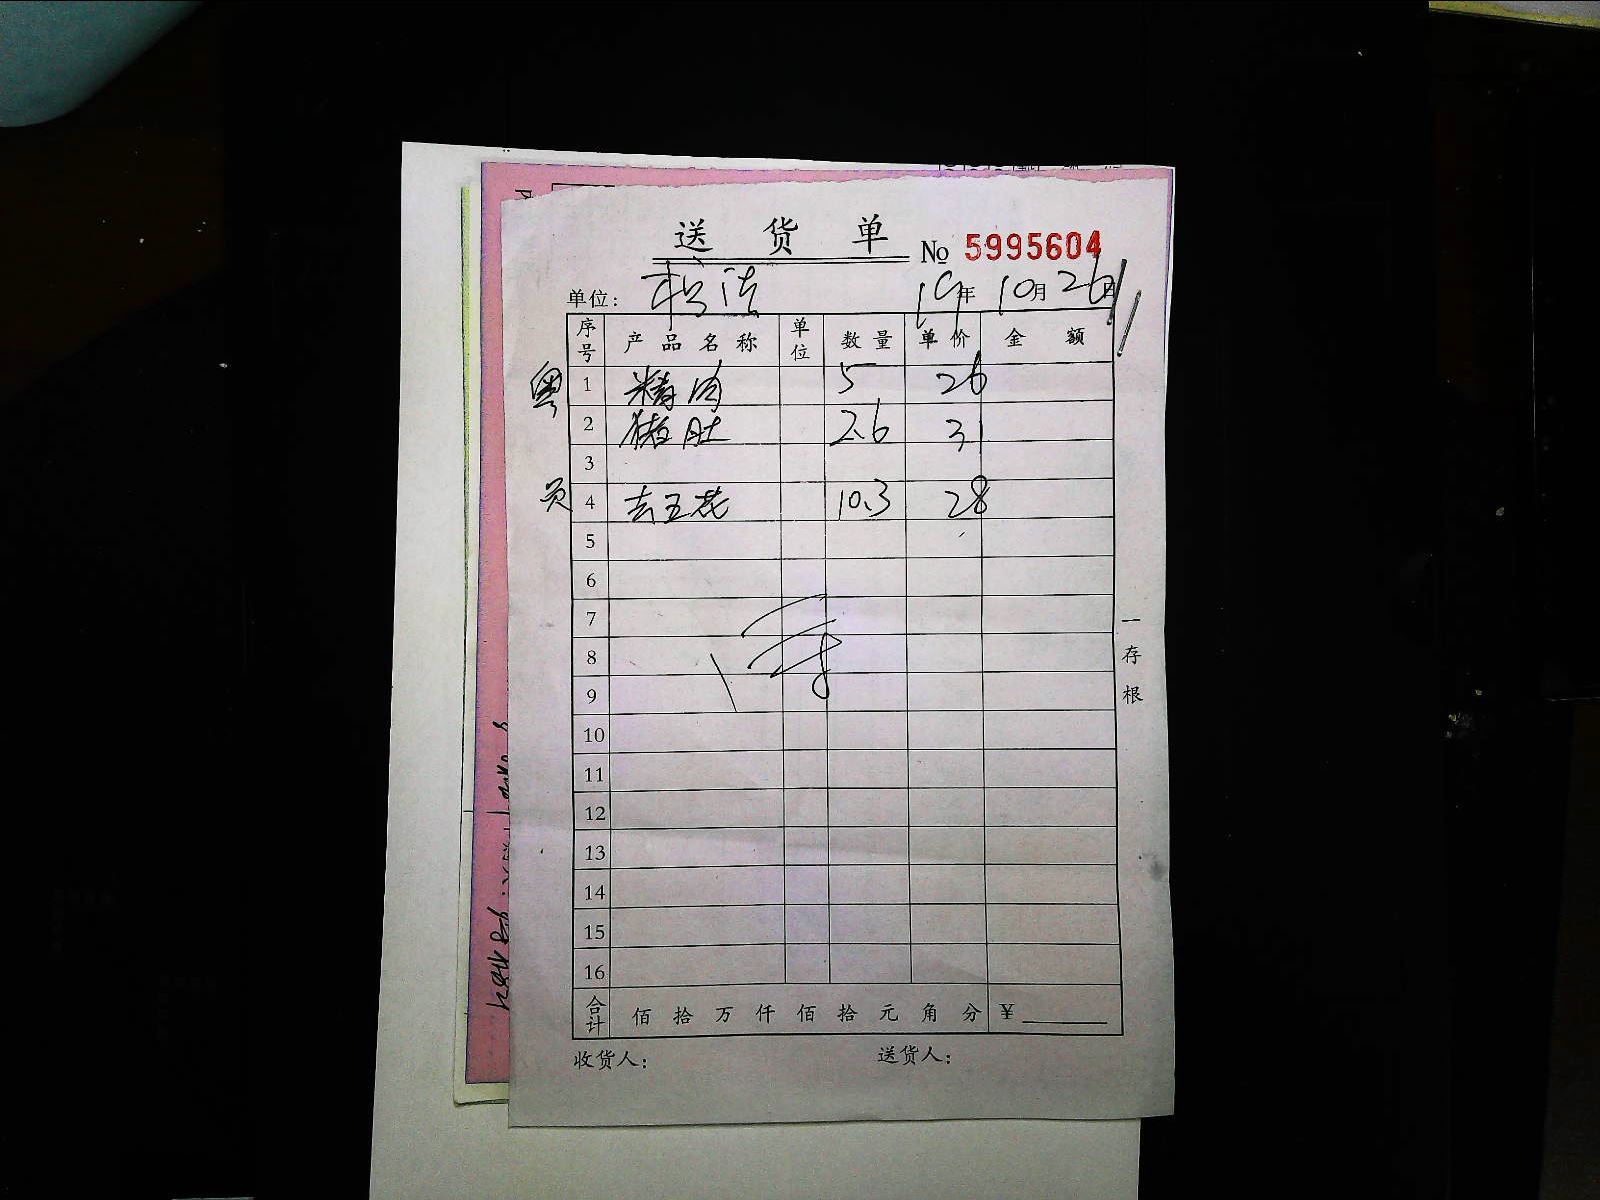 送 货 单
№ 5995604
单位: 松涛 19年 10月 26日
序号 产品名称 单位 数量 单价 金 额
粤 1 精肉 5 26
2 猪肚 2.6 31
3
员 4 去五花 10.3 28
5
6
7
8
9
10
11
12
13
14
15
16
合计 佰 拾 万 仟 佰 拾 元 角 分 ¥
收货人: 送货人:
一存根